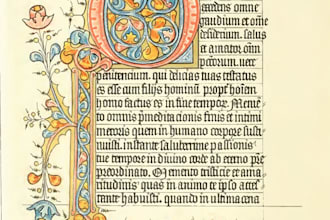 cedens omne
gaudium et om̄e
desiderium. salus
et amator om̄m
pc̄corum. vere
penitencium. qui delicias tuas testatus
es esse cum filijs hominū. propt̛ homēn
homo factus es in fine tempor̄. Memē
to omnis p̄meditacionis tue et intimi
meroris quem in humano corpore susti
nuisti. instante saluterrime passionis
tue tempore in diuino corde ab eterno p̄re
ordinato. Memento tristicie et ama
ritudinis quas in animo et ip̄so
tante habuisti. quando in ultima cena